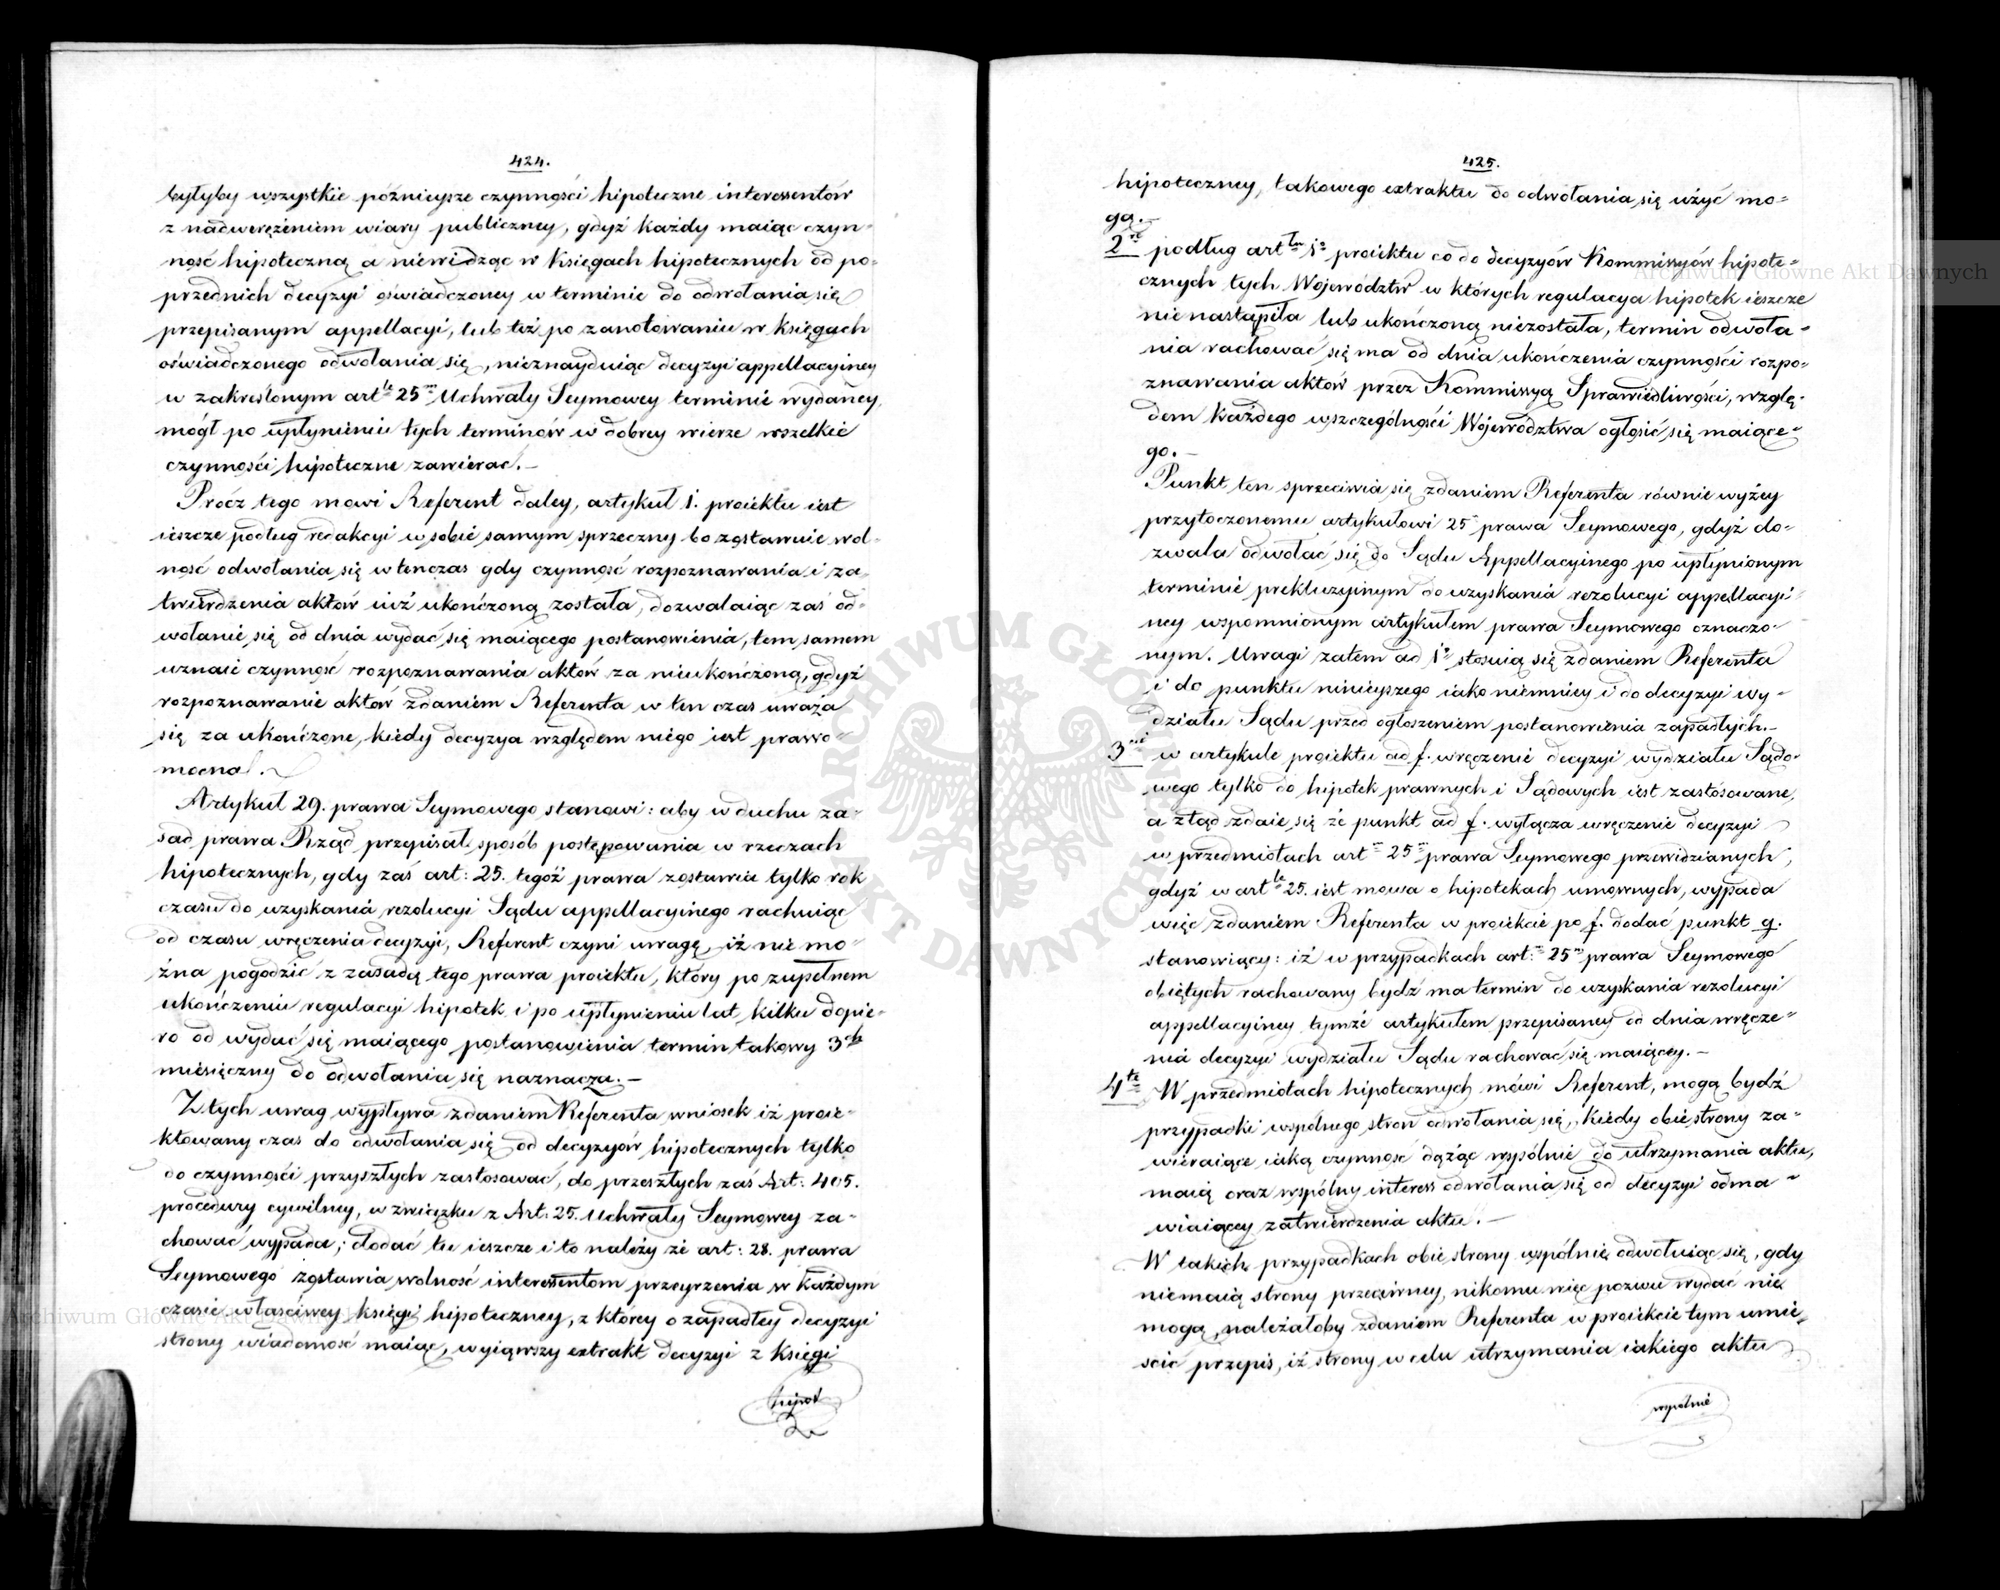 424.
byłyby wszystkie późnieysze czynności hipoteczne interessentów
z nadwerężeniem wiary publiczney, gdyż każdy maiąc czyn-
ność hipoteczną a niewidząc w księgach hipotecznych od po-
przednich decyzyi oświadczoney w terminie do odwołania się
przepisanym appellacyi, lub też po zanotowaniu w księgach
oświadczonego odwołania się, nieznayduiąc decyzyi appellacyiney
w zakreślonym art. 25 Uchwały Seymowey terminie wydaney,
mógł po upłynieniu tych terminów w dobrey wierze wszelkie
czynności hipoteczne zawierać.—
Prócz tego mowi Referent daley, artykuł 1. proiektu iest
ieszcze podług redakcyi w sobie samym sprzeczny bo zostawuie wol-
ność odwołania się w tenczas gdy czynność rozpoznawania i za-
twierdzenia aktów iuż ukończoną została, dozwalaiąc zaś od-
wołanie się od dnia wydać się maiącego postanowienia, tem samem
uznaie czynność rozpoznawania aktów za nieukończoną, gdyż
rozpoznawanie aktów zdaniem Referenta w ten czas uważa
się za ukończone, kiedy decyzya względem niego iest prawo-
mocna.
Artykuł 29. prawa Seymowego stanowi: aby w duchu za-
sad prawa Rząd przepisał sposób postępowania w rzeczach
hipotecznych, gdy zaś art: 25. tegóż prawa zostawia tylko rok
czasu do uzyskania rezolucyi Sądu appellacyinego rachuiąc
od czasu wręczenia decyzyi, Referent czyni uwagę, iż nie mo-
żna pogodzić z zasadą tego prawa proiektu, który po zupełnem
ukończeniu regulacyi hipotek i po upłynieniu lat kilku dopie-
ro od wydać się maiącego postanowienia termin takowy 3ch
miesięczny do odwołania się naznacza.—
Z tych uwag wypływa zdaniem Referenta wniosek iż proie-
ktowany czas do odwołania się od decyzyów hipotecznych tylko
do czynności przyszłych zastosować, do przeszłych zaś Art: 405.
procedury cywilney, w związku z Art: 25. Uchwały Seymowey za-
chować wypada; dodać tu ieszcze i to należy że art: 28. prawa
Seymowego zostawia wolność interessentom przeyrzenia w każdym
czasie właściwey księgi hipoteczney, z którey o zapadłey decyzyi
strony wiadomość maiąc, wyiąwszy extrakt decyzyi z księgi
hipot
425.
hipoteczney, takowego extraktu do odwołania się użyć mo-
gą.—
2re podług art 1o proiektu co do decyzyów Kommissyów hipote-
cznych tych Województw w których regulacya hipotek ieszcze
nie nastąpiła lub ukończoną niezostała, termin odwoła-
nia rachować się ma od dnia ukończenia czynności rozpo-
znawania aktów przez Kommissyą Sprawiedliwości, wzglę-
dem każdego wszczególności Województwa ogłosić się maiące-
go.—
Punkt ten sprzeciwia się zdaniem Referenta równie wyżey
przytoczonemu artykułowi 25 prawa Seymowego, gdyż do-
zwala odwołać się do Sądu Appellacyinego po upłynionym
terminie prekluzyinym do uzyskania rezolucyi appellacyi-
ney wspomnionym artykułem prawa Seymowego oznaczo-
nym. Uwagi zatem ad 1o stosuią się zdaniem Referenta
i do punktu ninieyszego iako niemniey i do decyzyi wy-
działu Sądu przed ogłoszeniem postanowienia zapadłych.—
3cie w artykule proiektu ad f. wręczenie decyzyi wydziału Sądo-
wego tylko do hipotek prawnych i Sądowych iest zastosowane,
a ztąd zdaie się że punkt ad f. wyłącza wręczenie decyzyi
w przedmiotach art 25 prawa Seymowego przewidzianych,
gdyż w art 25. iest mowa o hipotekach umownych, wypada
więc zdaniem Referenta w proiekcie po f. dodać punkt g.
stanowiący: iż w przypadkach art: 25 prawa Seymowego
obiętych rachowany bydź ma termin do uzyskania rezolucyi
appellacyiney tymże artykułem przepisaney od dnia wręcze-
nia decyzyi wydziału Sądu rachować się maiącey.—
4te W przedmiotach hipotecznych mówi Referent, mogą bydź
przypadki wspólnego stron odwołania się, kiedy obie strony za-
wieraiące iaką czynność dążąc wspólnie do utrzymania aktu,
maią oraz wspólny interess odwołania się od decyzyi odma-
wiaiącey zatwierdzenia aktu.—
W takich przypadkach obie strony wspólnie odwołuiąc się, gdy
niemaią strony przeciwney, nikomu więc pozwu wydać nie
mogą, należałoby zdaniem Referenta w proiekcie tym umie-
ścić przepis, iż strony w celu utrzymania iakiego aktu
wspólnie
Archiwum Główne Akt Dawnych
Archiwum Główne Akt Dawnych
ARCHIWUM GŁÓWNE AKT DAWNYCH